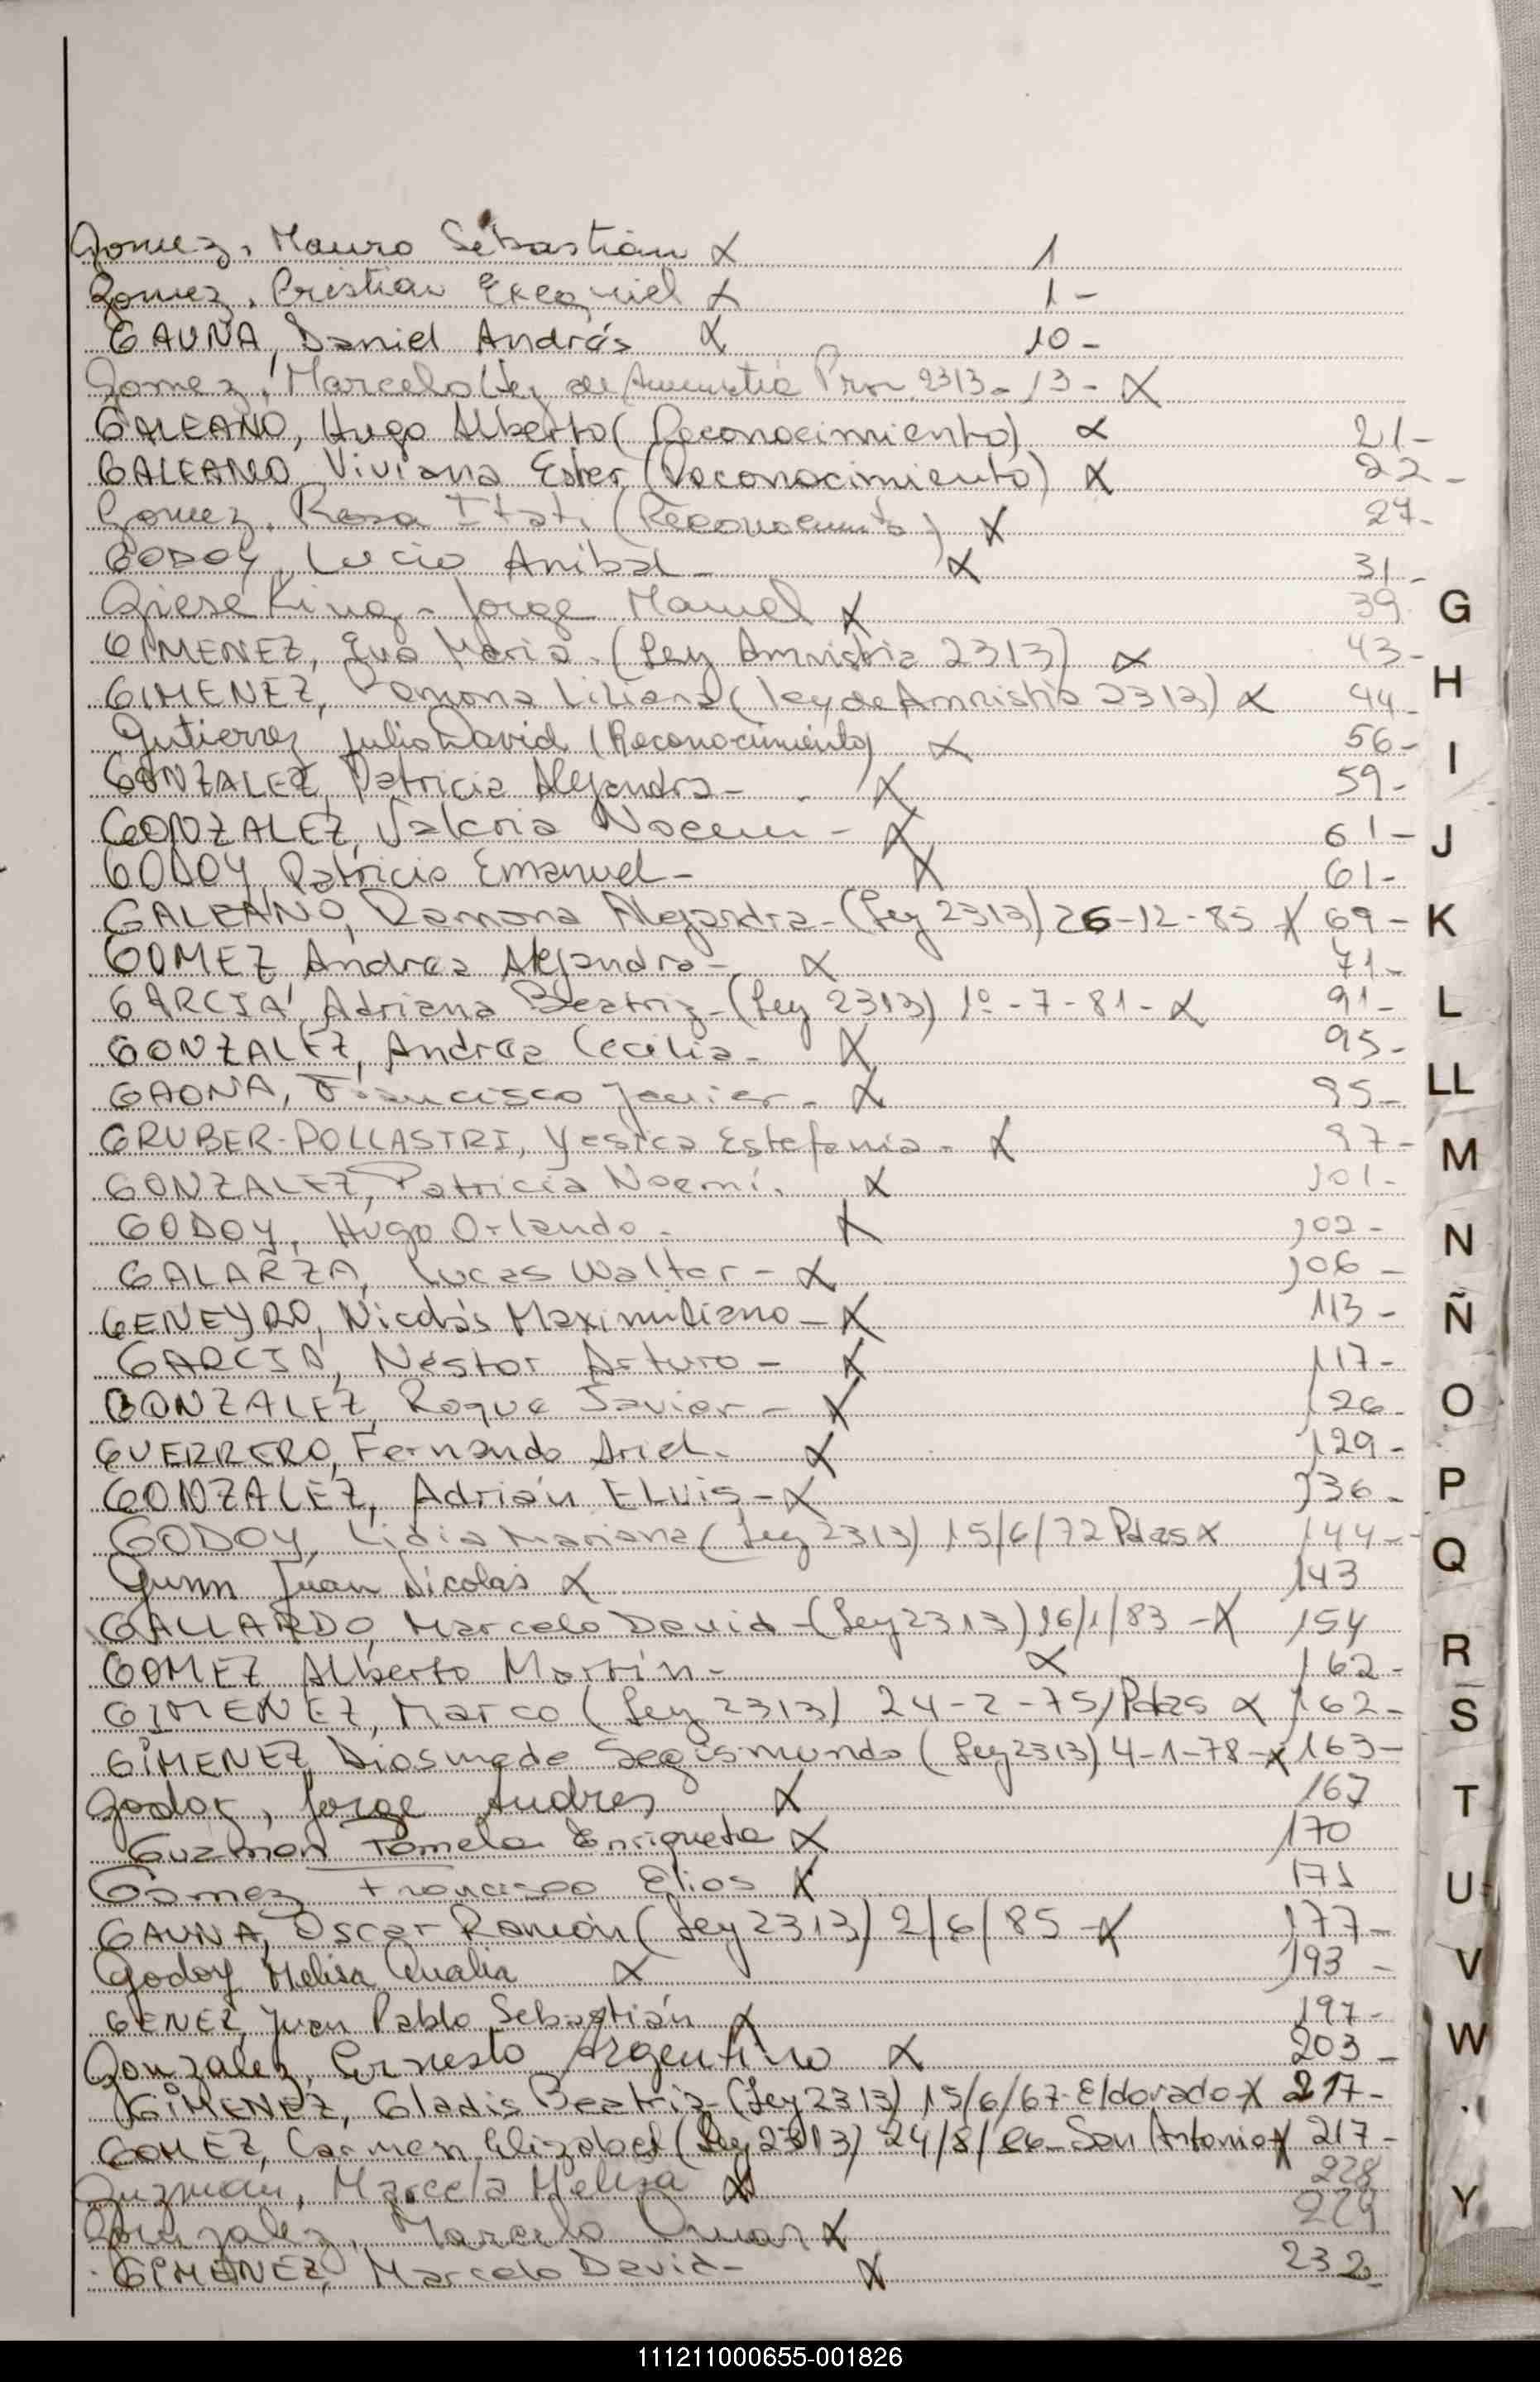 Gomez, Mauro Sebastián X 1
Gomez, Cristian Exequiel X 1-
GAUNA, Daniel Andrés X 10-
Gomez, Marcelo (Ley de Amnistia Prov. 2313- 13- X
GALEANO, Hugo Alberto (Reconocimiento) X 21-
GALEANO, Viviana Ester (Reconocimiento) X 22-
Gomez, Rosa Itatí (Reconocimiento) X 27-
GODOY, Lucio Anibal- X 31-
Giese King- Jorge Manuel X 39- G
GIMENEZ, Eva Maria. (Ley Amnistia 2313) X 43-
GIMENEZ, Ramona Liliana (ley de Amnistia 2313) X 44- H
Gutierrez Julio David (Reconocimiento) X 56-
GONZALEZ, Patricia Alejandra- X 59- I
GONZALEZ, Valeria Noemi- X 61- J
GODOY, Patricio Emanuel- X 61-
GALEANO, Ramona Alejandra- (Ley 2313) 26-12-85 X 69- K
GOMEZ Andrea Alejandra- X 71-
GARCIA, Adriana Beatriz- (Ley 2313) 1º-7-81- X 91- L
GONZALEZ, Andrea Cecilia- X 95-
GAONA, Francisco Javier- X 95- LL
GRUBER-POLLASTRI, Yesica Estefania- X 97- M
GONZALEZ, Patricia Noemí. X 101-
GODOY, Hugo Orlando- X 102- N
GALARZA, Lucas Walter- X 106-
GENEYRO, Nicolás Maximiliano- X 113- Ñ
GARCIA, Néstor Arturo- X 117-
GONZALEZ, Roque Javier- X 126- O
GUERRERO, Fernando Ariel- X 129-
GONZALEZ, Adrián ELvis- X 136- P
GODOY, Lidia Mariana (Ley 2313) 15/6/72 Pdas X 144-
Gunn Juan Nicolas X 143 Q
GALLARDO, Marcelo David- (Ley 2313) 16/1/83 -X 154
GOMEZ Alberto Martín- X 162- R
GIMENEZ, Marco (Ley 2313) 24-2-75/Pdas X 162- S
GIMENEZ, Diosmede Segismundo (Ley 2313) 4-1-78-X 163-
Godoy, Jorge Andres X 167 T
Guzman Pamela Enriqueta X 170
Gomez Francisco Elios X 171 U
GAUNA, Oscar Ramón (Ley 2313) 2/6/85 -X 177-
Godoy Melisa Analia X 193- V
GENEZ, Juan Pablo Sebastián X 197-
Gonzalez, Ernesto Argentino X 203- W
GIMENEZ, Gladis Beatriz- (Ley 2313) 15/6/67- Eldorado-X 217-
GOMEZ, Carmen Elizabet (Ley 2313) 24/8/86- San Antonio X 217-
Guzman, Marcela Melisa X 228
Gonzalez, Marcelo Omar X 229 Y
GIMENEZ, Marcelo David- X 232-
111211000655-001826